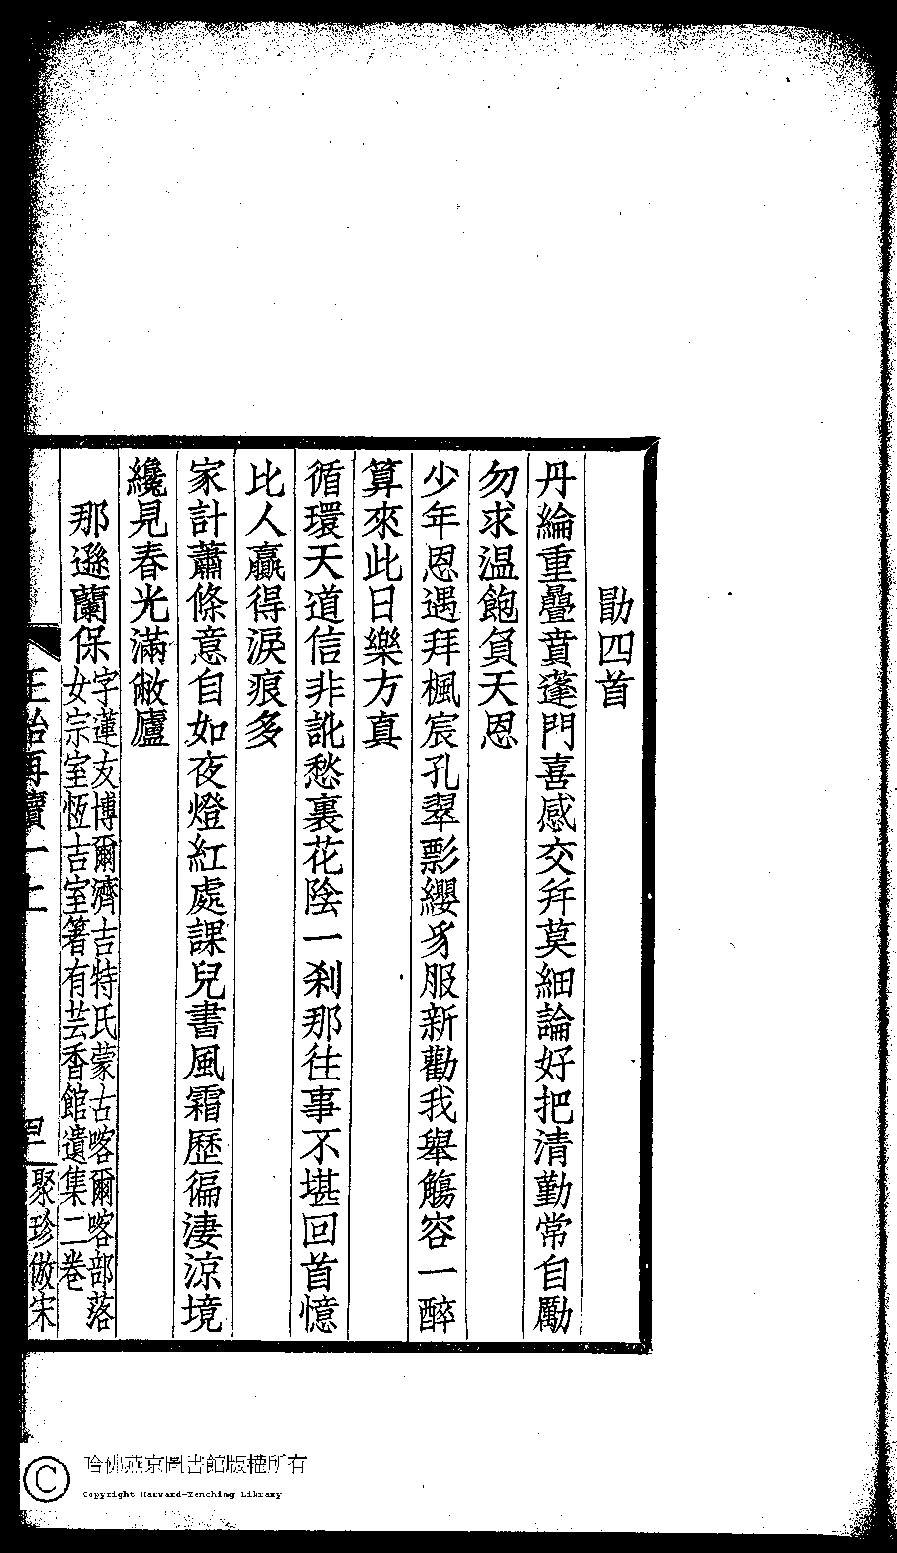 勖四首
丹綸重疊賁蓬門喜感交幷莫細論好把清勤常自勵
勿求温飽負天恩
少年恩遇拜楓宸孔翠影纓身服新勸我舉觴容一醉
算來此日樂方真
循環天道信非訛愁裏花陰一剎那往事不堪回首憶
比人贏得淚痕多
家計蕭條意自如夜燈紅處課兒書風霜歷徧淒涼境
纔見春光滿敝廬
那遜蘭保
字蓮友博爾濟吉特氏蒙古喀爾喀部落
女宗室恆吉室箸有芸香館遺集二卷
再續一上
聚珍倣宋
哈佛燕京圖書館版權所有
Copyright Harvard-Yenching Library